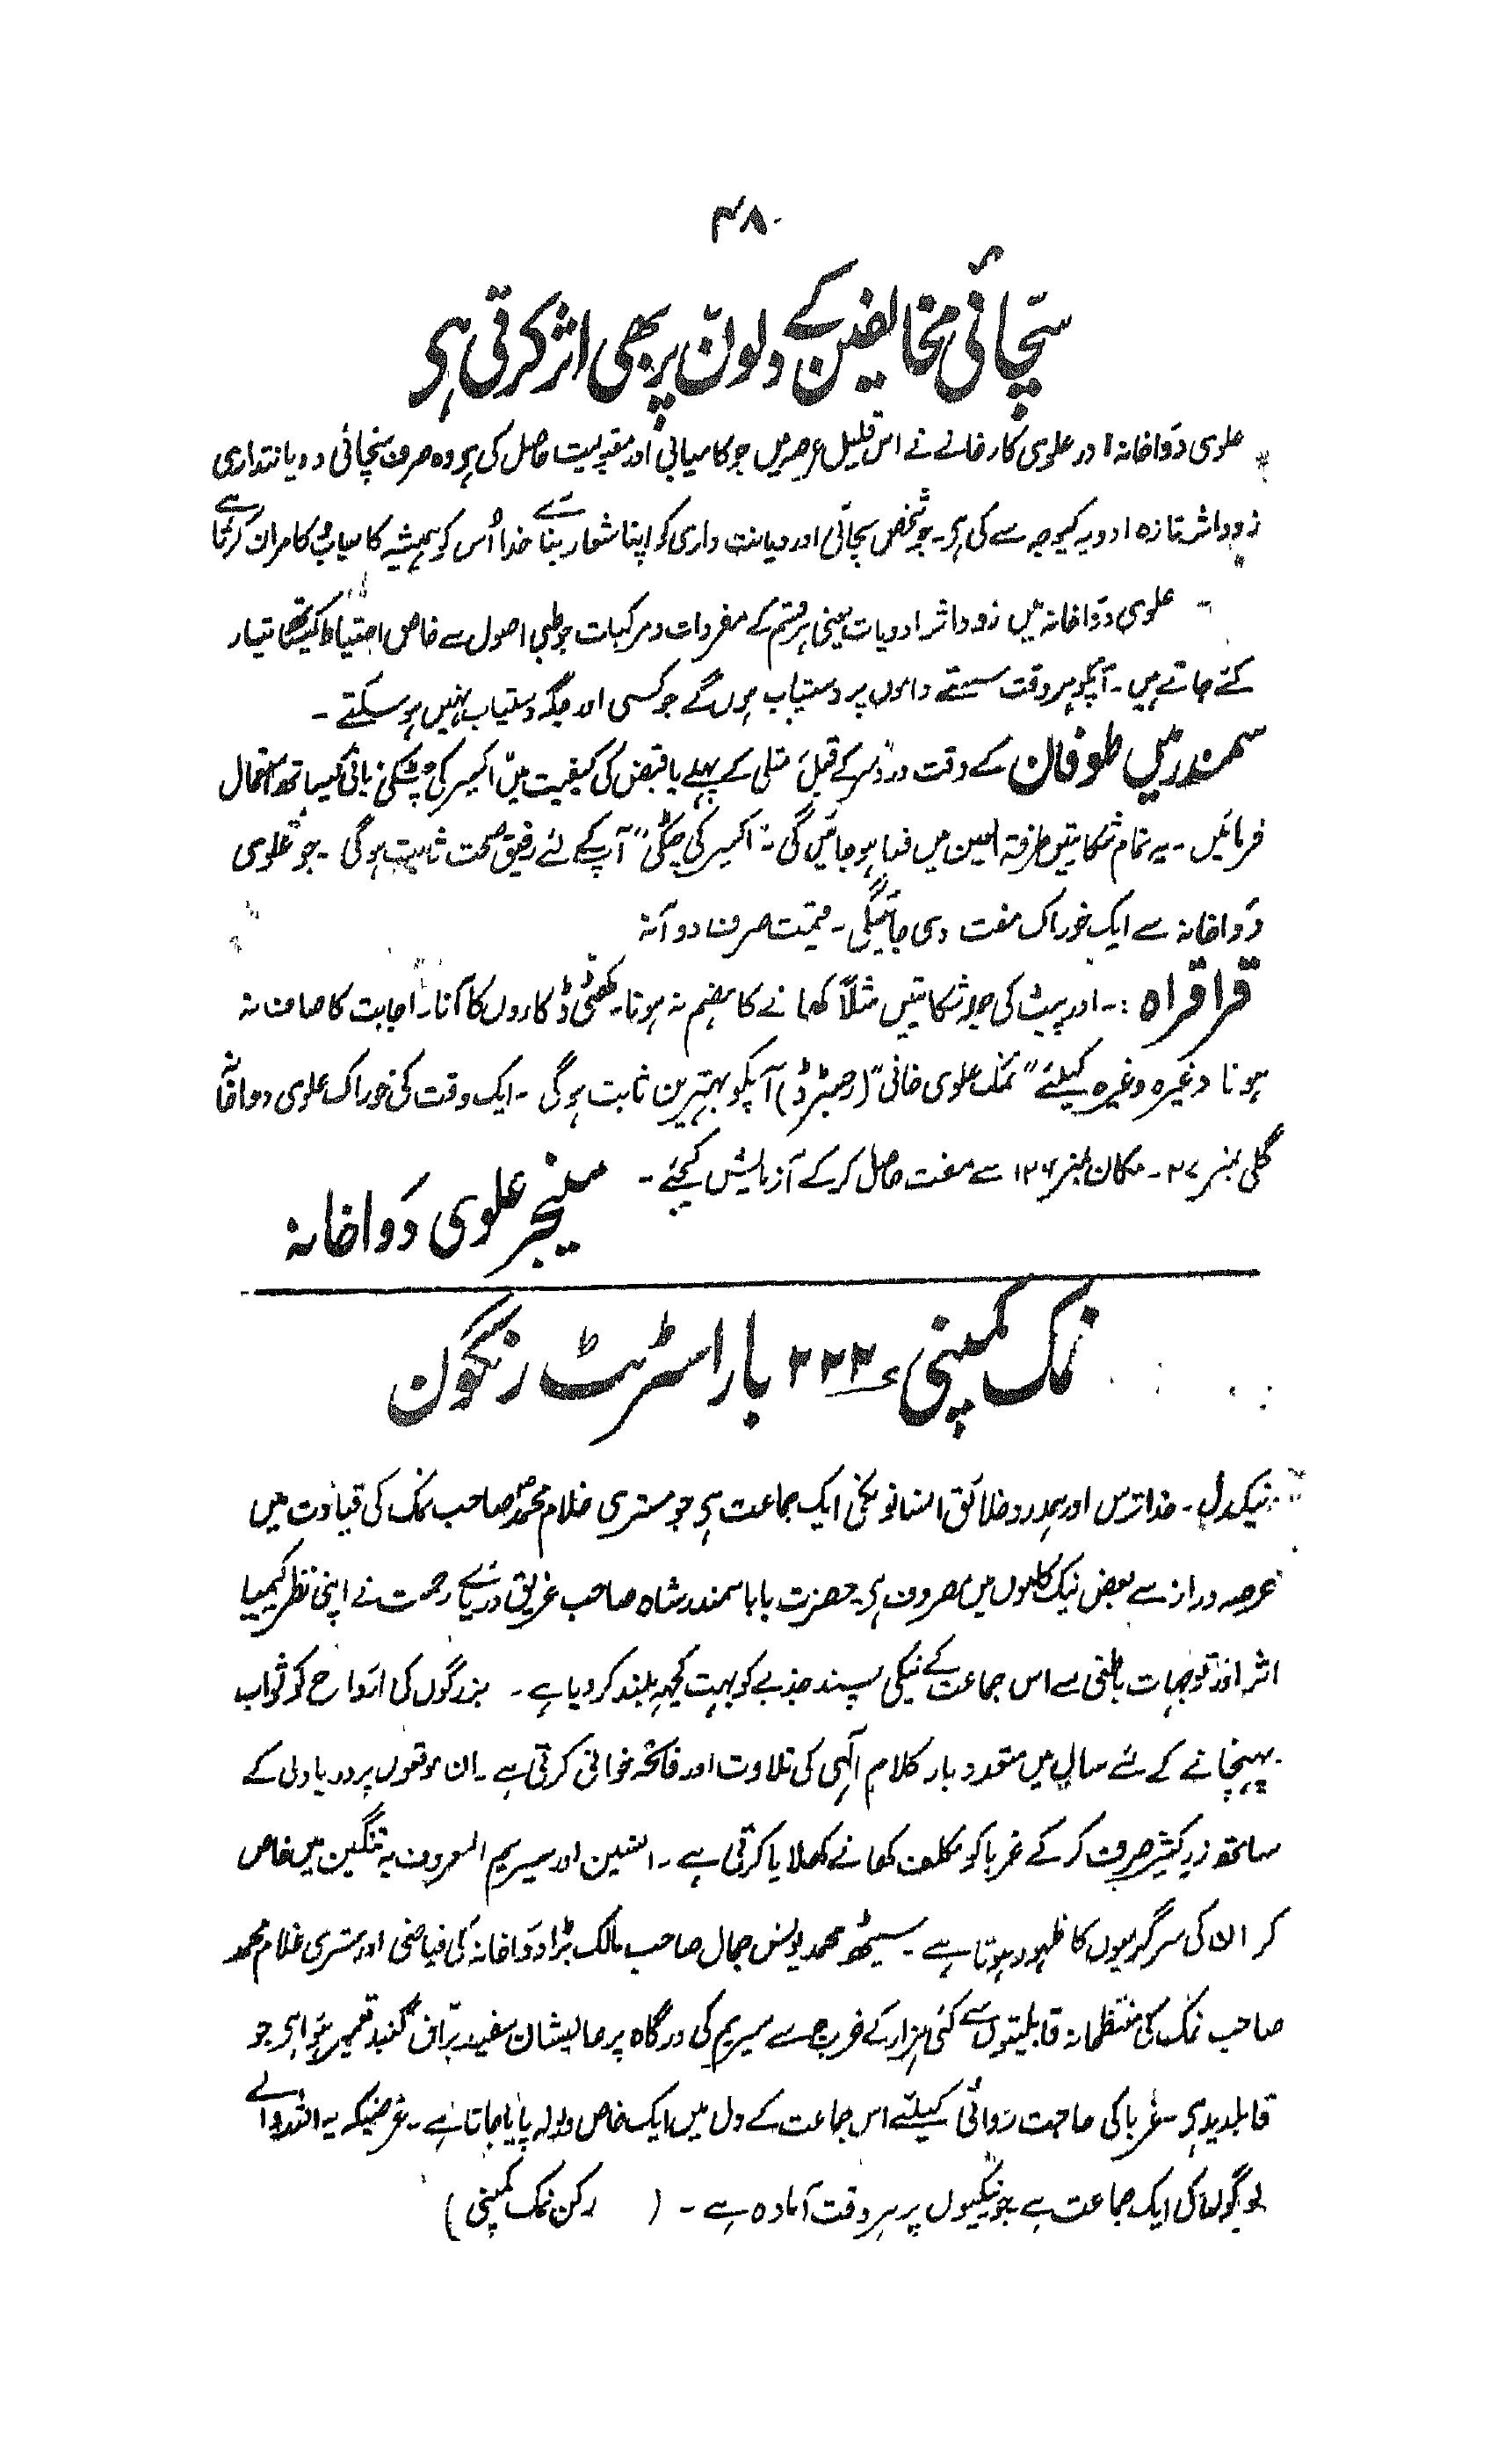 ۴۸
سچّائی مخالفین کے دلوں پر بھی اثر کرتی ہی
علوی دَواخانہ اور علوی کارخانے نے اس قلیل عرصہ میں جو کامیابی اور مقبولیت حاصل کی ہی وہ صرف سچّائی و دیانتداری
زود اثر تازہ ادویہ کیوجہ سے کی ہی۔ جو شخص سچّائی اور دیانت داری کو اپنا شعار بنائے خدا اُس کو ہمیشہ کامیاب و کامران کرتا ہے
علوی دَواخانہ میں زود اثر ادویات یعنی ہر قسم کے مفردات و مرکبات جو طبی اصول سے خاص احتیاط کیساتھ تیار
کئے جاتے ہیں۔ آپکو ہر وقت سستے داموں پر دستیاب ہوں گے جو کسی اور جگہ دستیاب نہیں ہو سکتے۔
سمندر میں طوفان کے وقت دردِ سر کے قبل، متلی کے پہلے یا قبض کی کیفیت میں اکسیر کی چٹکی پانی کیساتھ استعمال
فرمائیں۔ یہ تمام شکایتیں طرفۃ العین میں فنا ہو جائیں گی۔ "اکسیر کی چٹکی" آپ کے لئے رفیق صحت ثابت ہوگی۔ جو علوی
دَواخانہ سے ایک خوراک مفت دی جائیگی۔ قیمت صرف دو آنہ
قراقراہ :۔ اور پیٹ کی جو شکایتیں مثلاً کھانے کا ہضم نہ ہونا۔ کھٹی ڈکاروں کا آنا۔ اجابت کا صاف نہ
ہونا وغیرہ وغیرہ کیلئے "نمک علوی خانی" (رجسٹرڈ) آپکو بہترین ثابت ہوگی۔ ایک وقت کی خوراک علوی دواخانہ
گلی نمبر ۲۷۔ مکان نمبر ۱۲۶ سے مفت حاصل کر کے آزمایش کیجئے۔
منیجر علوی دَواخانہ
نمک کمپنی ۲۲۳ بار اسٹریٹ رنگون
نیک دل۔ خدا ترس اور ہمدرد خلائق انسانوں کی ایک جماعت ہی جو مستری غلام محمد صاحب نمک کی قیادت میں
عرصہ دراز سے بعض نیک کاموں میں مصروف ہی۔ حضرت بابا سمندر شاہ صاحب غریق دریائے رحمت نے اپنی نظر کیمیا
اثر اور توجہات باطنی سے اس جماعت کے نیکی پسند جذبے کو بہت کچھ بلند کر دیا ہے۔ بزرگوں کی ارواح کو ثواب
پہنچانے کے لئے سال میں متعدد بار کلام الٰہی کی تلاوت اور فاتحہ خوانی کرتی ہے۔ ان موقعوں پر دریا دلی کے
ساتھ زر کثیر صرف کر کے غربا کو مکلف کھانے کھلایا کرتی ہے۔ انسین اور سیریم المعروف بہ تنگین میں خاص
کر ان کی سرگرمیوں کا ظہور ہوتا ہے۔ سیٹھ محمد یونس جمال صاحب مالک بڑا دَواخانہ کی فیاضی اور مستری غلام محمد
صاحب نمک کی منتظمانہ قابلیتوں سے کئی ہزار کے خرچ سے سیریم کی درگاہ پر عالیشان سفید برّاق گنبد تعمیر ہوا ہی جو
قابلدید ہی۔ غربا کی حاجت روائی کیلئے اس جماعت کے دل میں ایک خاص ولولہ پایا جاتا ہے۔ غرضیکہ یہ اللہ والے
لوگوں کی ایک جماعت ہے جو نیکیوں پر ہر وقت آمادہ ہے۔ ( رکن نمک کمپنی )